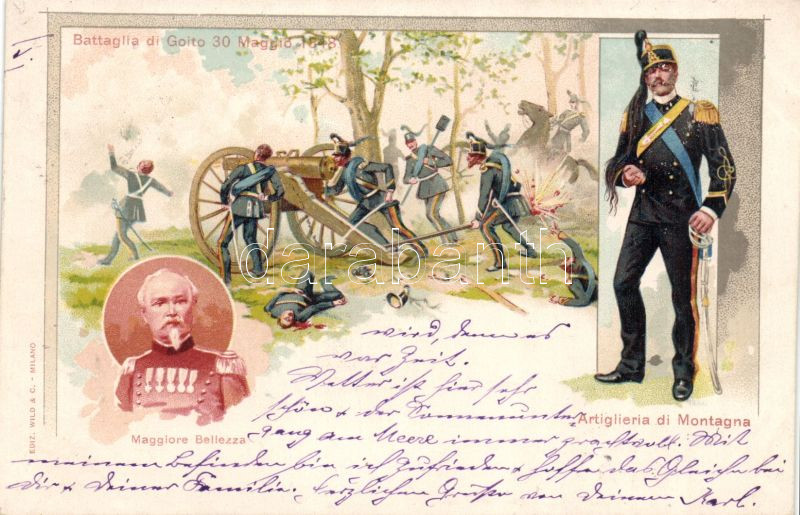 Battaglia di Goito 30 Maggio 1848
EDIZ. WILD & C. - MILANO
Maggiore Bellezza
Artiglieria di Montagna
darabanth
wird, denn es
war Zeit.
Wetter ist hier sehr
schön & der Sonnenunter-
gang am Meere immer prachtvoll. Mit
meinem Befinden bin ich zufrieden & hoffe das Gleiche bei
Dir & Deiner Familie. Herzlichen Grüße von Deinem Karl.